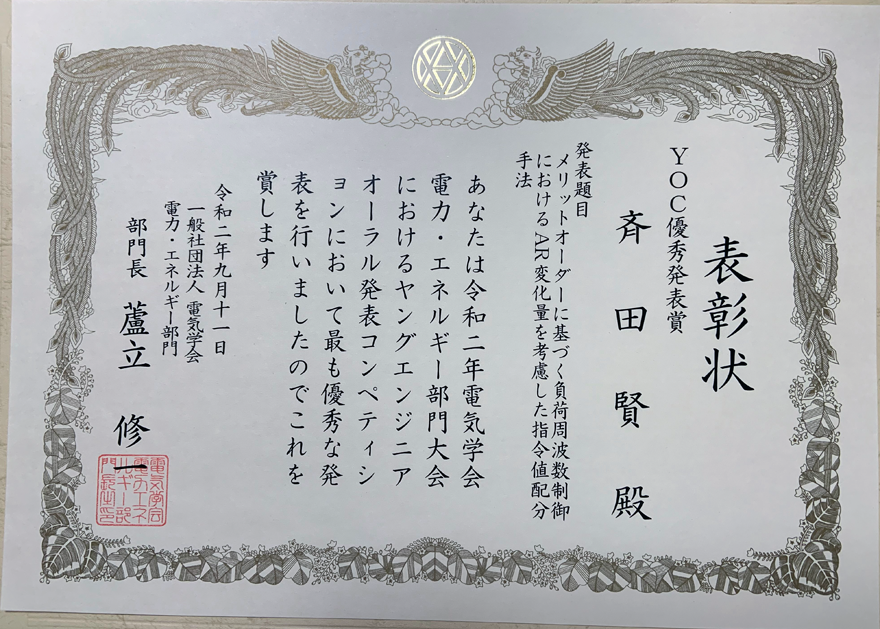 表彰状
YOC優秀発表賞
斉田賢 殿
発表題目
メリットオーダーに基づく負荷周波数制御
におけるAR変化量を考慮した指令値配分
手法
あなたは令和二年電気学会
電力・エネルギー部門大会
におけるヤングエンジニア
オーラル発表コンペティシ
ョンにおいて最も優秀な発
表を行いましたのでこれを
賞します
令和二年九月十一日
一般社団法人 電気学会
電力・エネルギー部門
部門長 蘆立 修一
電気学会
電力エネ
ルギー部
門長之印